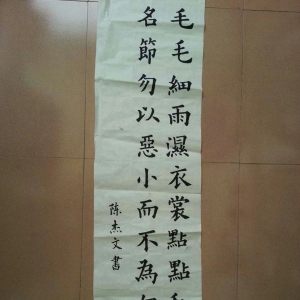 毛毛細雨濕衣裳點點
名節勿以惡小而不為
陈杰文書